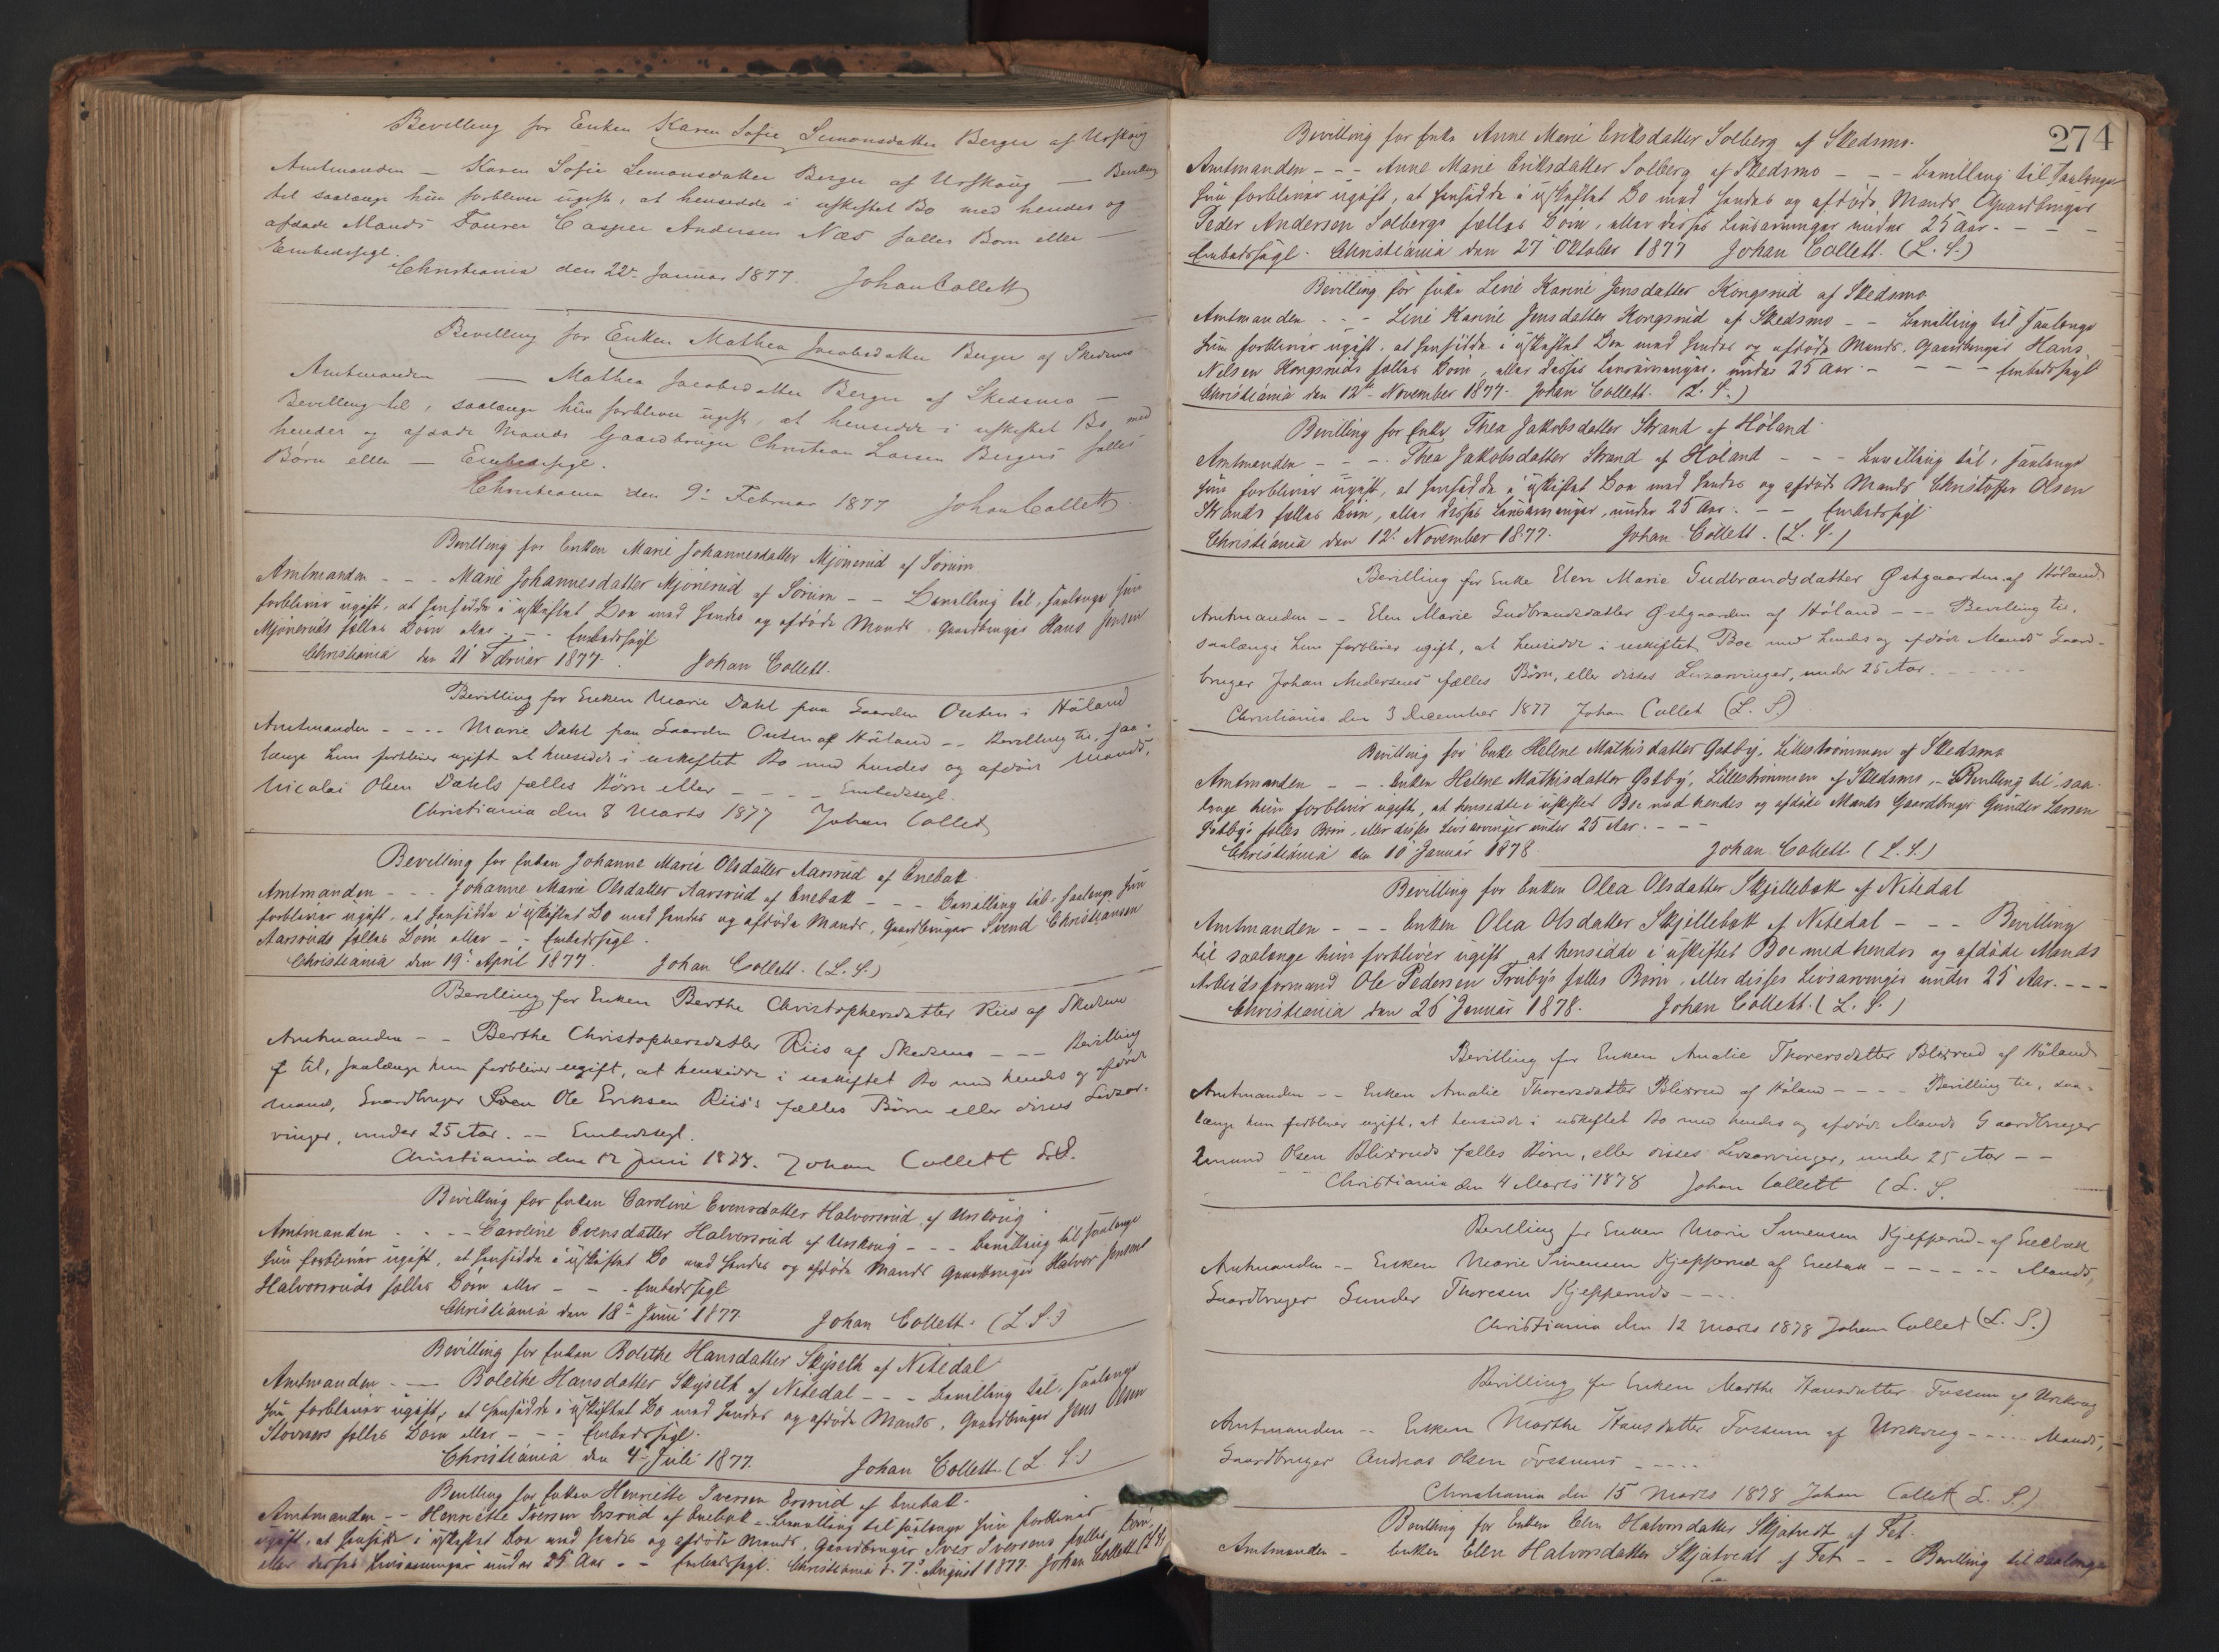 Bevilling for Enken Karen Sofie Simonsdatter Berger af Urskoug
Amtmanden — Karen Sofie Simonsdatter Berger af Urskoug — Bevilling
til saalænge hun forbliver ugift, at hensidde i uskiftet Bo med hendes og
afdøde Mands Casper Andersen Næs fælles Børn eller —
Embedssegl.
Christiania den 22. Januar 1877. Johan Collett
Bevilling for Enken Mathea Jacobsdatter Berger af Skedsmo
Amtmanden — Mathea Jacobsdatter Berger af Skedsmo —
Bevilling til, saalænge hun forbliver ugift, at hensidde i uskiftet Bo med
hendes og afdøde Mands Gaardbruger Christian Larsen Bergers fælles
Børn eller — Embedssegl.
Christiania den 9. Februar 1877 Johan Collett.
Bevilling for Enken Marie Johannesdatter Mjønerud af Sørum
Amtmanden - - - Marie Johannesdatter Mjønerud af Sørum - - Bevilling til, saalænge hun
forbliver ugift, at hensidde i uskiftet Boe med hendes og afdøde Mands Gaardbruger Hans Jensen
Mjøneruds fælles Børn eller - - - Embedssegl
Christiania den 21 Februar 1877. Johan Collett.
Bevilling for Enken Marie Dahl paa Gaarden Outen i Høland
Amtmanden - - - - Marie Dahl paa Gaarden Outen af Høland - - Bevilling til, saa-
længe hun forbliver ugift at hensidde i uskiftet Bo med hendes og afdøde Mands,
Nicolai Olsen Dahls fælles Børn eller - - - - Embedssegl.
Christiania den 8 Marts 1877 Johan Collet
Bevilling for Enken Johanne Marie Olsdatter Aarsrud af Enebak
Amtmanden - - - Johanne Marie Olsdatter Aarsrud af Enebak - - - Bevilling til, saalænge hun
forbliver ugift, at hensidde i uskiftet Bo med hendes og afdøde Mands, Gaardbruger Svend Christiansen
Aarsruds fælles Børn eller - - Embedssegl.
Christiania den 19. April 1877. Johan Collett. (L. S.)
Bevilling for Enken Berthe Christophersdatter Riis af Skedsmo
Amtmanden - - Berthe Christophersdatter Riis af Skedsmo - - - Bevilling
til, saalænge hun forbliver ugift, at hensidde i uskiftet Bo med hendes og afdøde
Mand, Gaardbruger Ole Eriksen Riis's fælles Børn eller disses Livsar-
vinger, under 25 Aar. - - Embedssegl.
Christiania den 12 Juni 1877. Johan Collett L.S.
Bevilling for Enken Caroline Evensdatter Halvorsrud af Urskoug
Amtmanden - - - - Caroline Evensdatter Halvorsrud af Urskoug - - - Bevilling til saalænge
hun forbliver ugift, at hensidde i uskiftet Bo med hendes og afdøde Mands Gaardbruger Halvor Jensens
Halvorsruds fælles Børn eller - - - Embedssegl
Christiania den 18. Juni 1877. Johan Collett. (L. S.)
Bevilling for Enken Bolethe Hansdatter Skyseth af Nitedal
Amtmanden - — Bolethe Hansdatter Skyseth af Nitedal - - - Bevilling til, saalænge
hun forbliver ugift, at hensidde i uskiftet Bo med hendes og afdøde Mands, Gaardbruger Jens Olsen
Stovners fælles Børn eller - - - Embedssegl.
Christiania den 4. Juli 1877. Johan Collett. (L. S.)
Bevilling for Enken Henriette Iversen Ersrud af Enebak.
Amtmanden - - Henriette Iversen Ersrud af Enebak - Bevilling til saalænge hun forbliver
ugift, at hensidde i uskiftet Boe med hendes og afdøde Mands, Gaardbruger Iver Iversens fælles Børn,
eller disses Livsarvinger under 25 Aar - - Embedssegl. Christiania d. 7. August 1877. Johan Collett (L.S.)
274
Bevilling for Enke Anne Marie Eriksdatter Solberg af Skedsmo.
Amtmanden - - - Anne Marie Eriksdatter Solberg af Skedsmo - - - Bevilling til saalænge
hun forbliver ugift, at hensidde i uskiftet Bo med hendes og afdøde Mands Gaardbruger
Peder Andersen Solbergs fælles Børn, eller disses Livsarvinger under 25 Aar. - - -
Embedssegl. Christiania den 27 Oktober 1877 Johan Collett. (L. S.)
Bevilling for Enke Line Karine Jensdatter Kongsrud af Skedsmo
Amtmanden - - - Line Karine Jensdatter Kongsrud af Skedsmo - - Bevilling til saalænge
hun forbliver ugift, at hensidde i uskiftet Boe med hendes og afdøde Mands, Gaardbruger Hans
Nilsen Kongsruds fælles Børn, eller disses Livsarvinger, under 25 Aar - - - - Embedssegl
Christiania den 12te November 1877. Johan Collett. (L. S.)
Bevilling for Enke Thea Jakobsdatter Strand af Høland
Amtmanden - - - Thea Jakobsdatter Strand af Høland - - - Bevilling til, saalænge
hun forbliver ugift, at hensidde i uskiftet Boe med hendes og afdøde Mands Christoffer Olsen
Strands fælles Børn, eller disses Livsarvinger, under 25 Aar. - - Embedssegl
Christiania den 12. November 1877. Johan Collett. (L. S.)
Bevilling for Enke Elen Marie Gudbrandsdatter Østgaarden af Høland
Amtmanden - - Elen Marie Gudbrandsdatter Østgaarden af Høland - - - Bevilling til,
saalænge hun forbliver ugift, at hensidde i uskiftet Boe med hendes og afdøde Mands Gaard-
bruger Johan Andersens fælles Børn, eller disses Livsarvinger, under 25 Aar. - - - -
Christiania den 3 December 1877 Johan Collet (L. S.)
Bevilling for Enke Helene Mathisdatter Østby, Lillestrømmen af Skedsmo
Amtmanden - - - Enken Helene Mathisdatter Østby, Lillestrømmen af Skedsmo, - Bevilling til saa-
længe hun forbliver ugift, at hensidde i uskiftet Boe med hendes og afdøde Mands Gaardbruger Gunder Larsen
Østbys fælles Børn, eller disses Livsarvinger under 25 Aar. - - -
Christiania den 10 Januar 1878. Johan Collett (L. S.)
Bevilling for Enken Olea Olsdatter Skjillebæk af Nitedal
Amtmanden - - - Enken Olea Olsdatter Skjillebæk af Nitedal - - - Bevilling
til saalænge hun forbliver ugift at hensidde i uskiftet Boe med hendes og afdøde Mands
Arbeidsformand Ole Pedersen Trubys fælles Børn, eller disses Livsarvinger under 25 Aar. - - -
Christiania den 26 Januar 1878. Johan Collett. (L. S.)
Bevilling for Enken Amalie Thorersdatter Blixrud af Høland
Amtmanden - - Enken Amalie Thorersdatter Blixrud af Høland - - - - Bevilling til, saa-
længe hun forbliver ugift, at hensidde i uskiftet Bo med hendes og afdøde Mands Gaardbruger
Amund Olsen Blixruds fælles Børn, eller disses Livsarvinger, under 25 Aar - -
Christiania den 4 Marts 1878 Johan Collett (L. S.
Bevilling for Enken Marie Simensen Kjepperud af Enebak
Amtmanden - - Enken Marie Simensen Kjepperud af Enebak - - - - - - Mands,
Gaardbruger Gunder Thoresen Kjepperuds - - - -
Christiania den 12 Marts 1878 Johan Collet (L. S.)
Bevilling for Enken Marthe Hansdatter Fossum af Urskoug
Amtmanden - - Enken Marthe Hansdatter Fossum af Urskoug - - - - - Mands,
Gaardbruger Andreas Olsen Fossums - - - - -
Christiania den 15 Marts 1878 Johan Collett (L. S.)
Bevilling for Enken Elen Halvorsdatter Skjatvedt af Fet.
Amtmanden - Enken Elen Halvorsdatter Skjatvedt af Fet - - Bevilling til saalænge